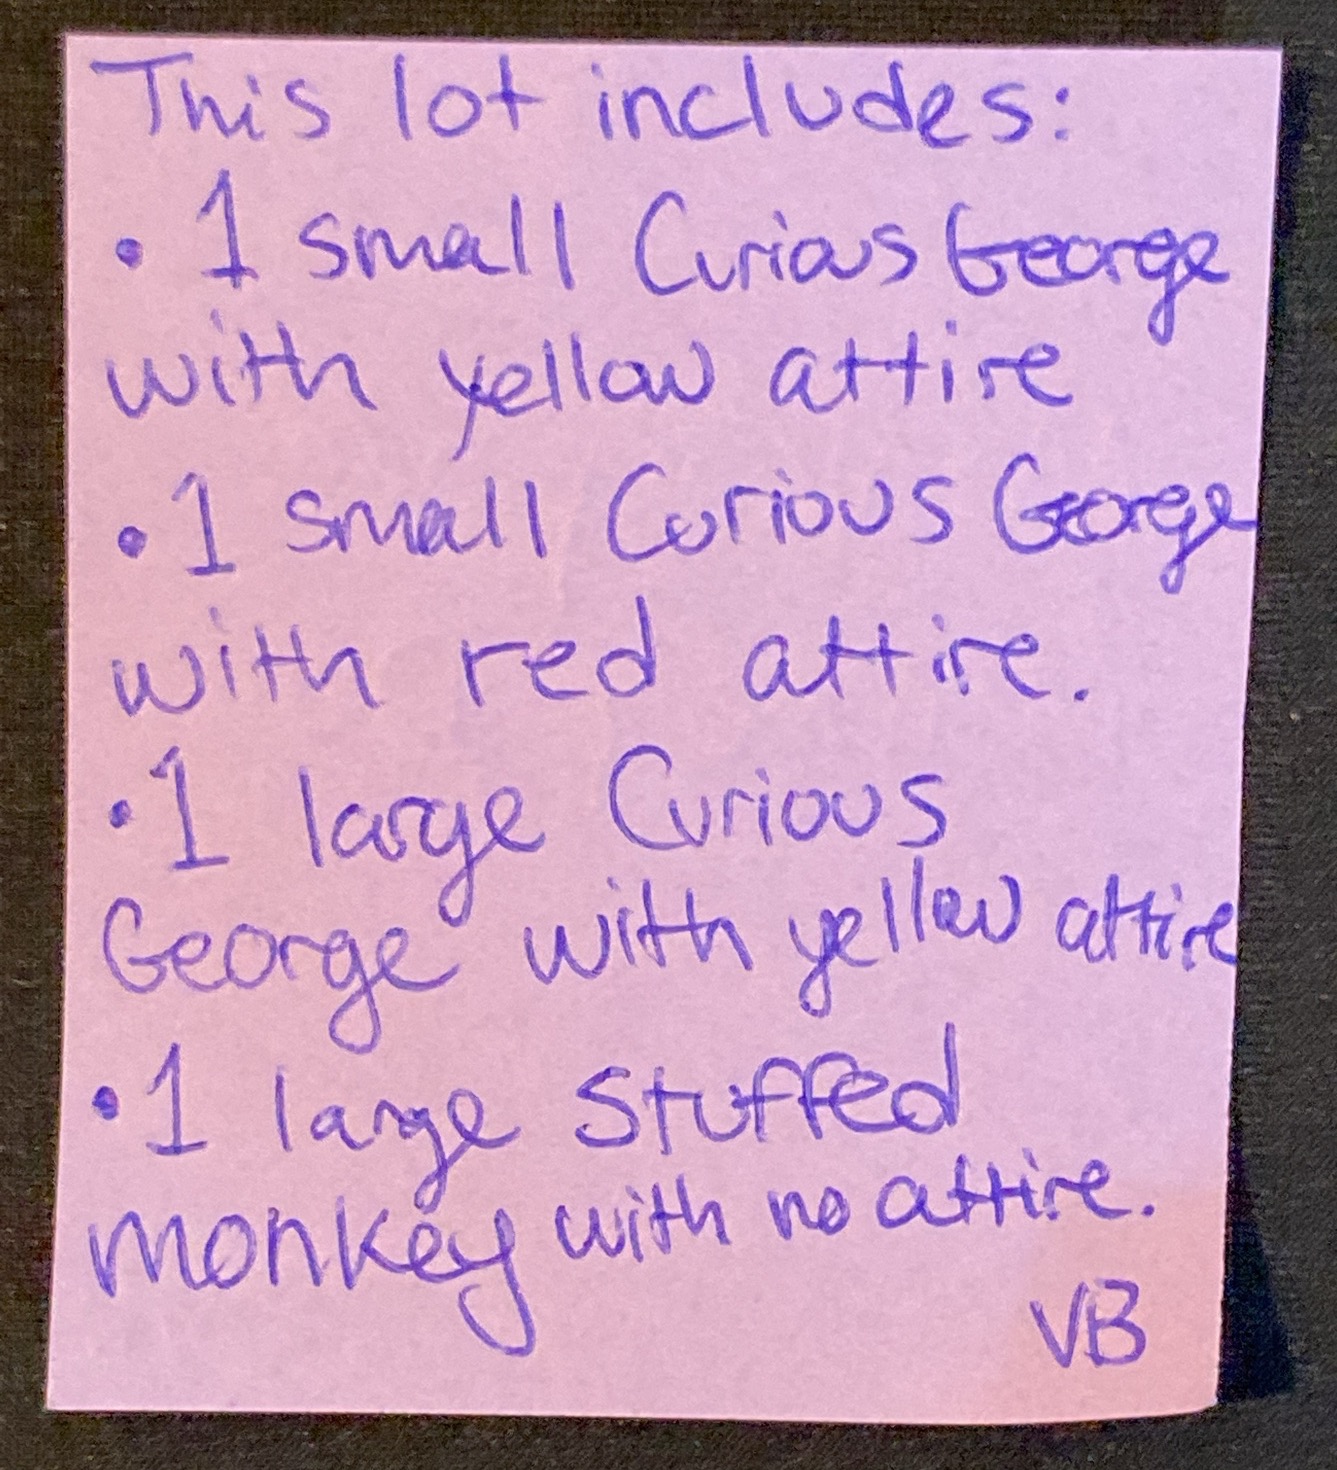 This lot includes:
• 1 small Curious George
with yellow attire
• 1 small Curious George
with red attire.
• 1 large Curious
George with yellow attire
• 1 large stuffed
monkey with no attire.
VB